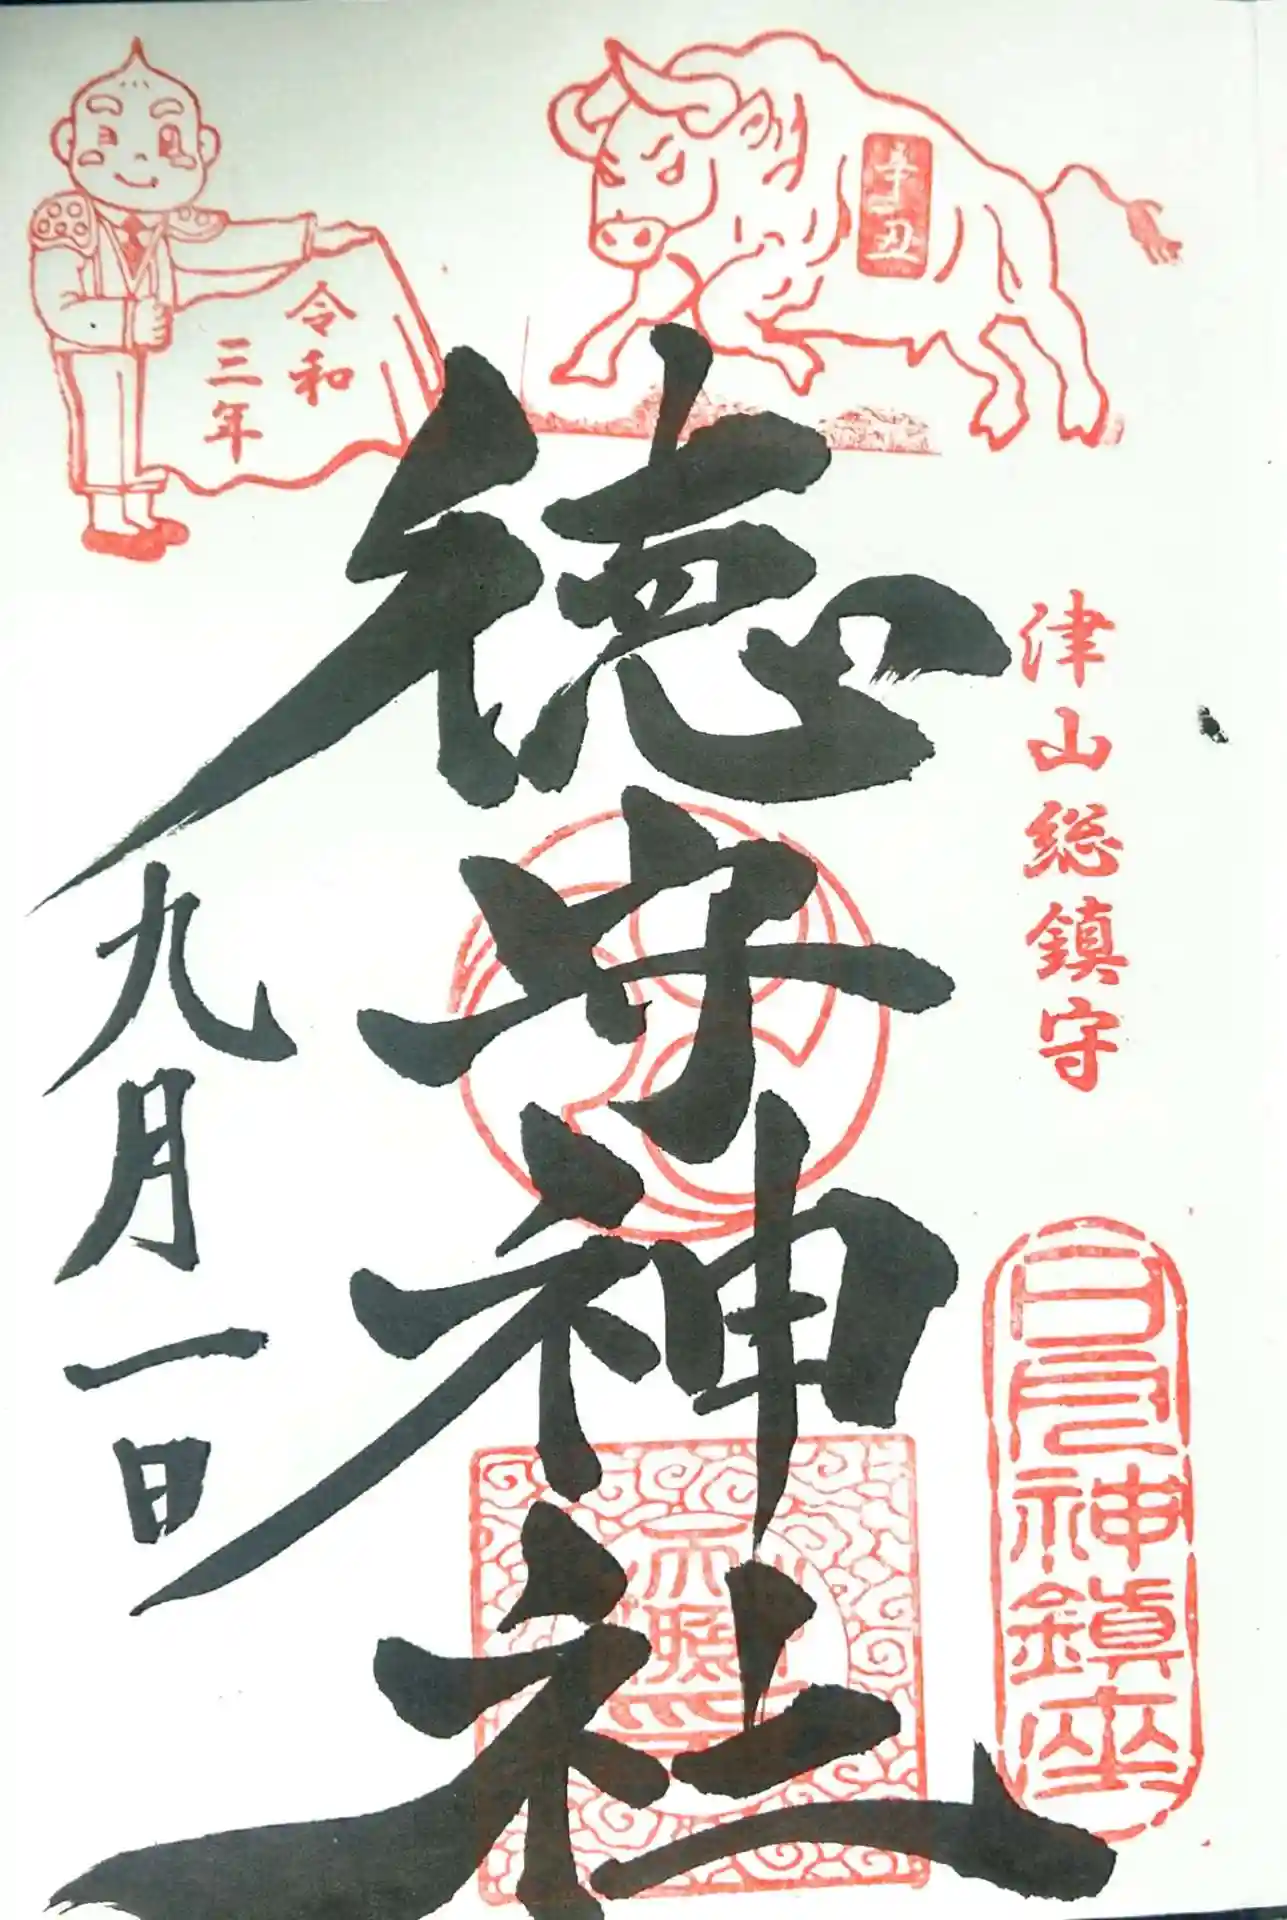 辛丑
令和
三年
津山総鎮守
日月神鎮座
徳守神社
九月一日